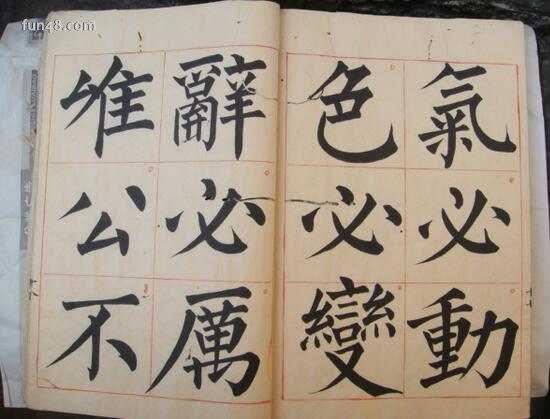 fun48.com
氣必動
色必變
辭必厲
惟公不